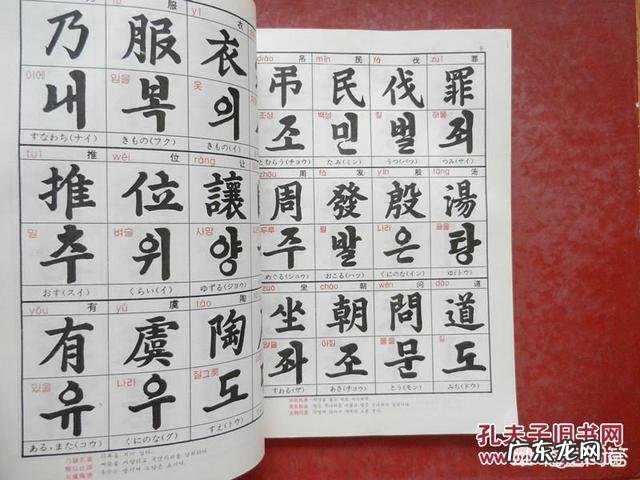 服 yī 衣
乃 服 衣
이에 입을 옷
내 복 의
すなわち(ナイ) きもの(フク) きもの(イ)
tuī 推 wèi 位 ràng 让
推 位 讓
밀 벼슬 사양
추 위 양
おす(スイ) くらい(イ) ゆずる(ジョウ)
yǒu 有 yú 虞 táo 陶
有 虞 陶
있을 나라 질그릇
유 우 도
ある,また(コウ) くにのな(グ) すえ(トウ)
9
diào 吊 mín 民 fá 伐 zuì 罪
弔 民 伐 罪
조상 백성 칠 허물
조 민 벌 죄
とむらう(チョウ) たみ(ミン) うつ(バツ) つみ(サイ)
zhōu 周 fā 发 yīn 殷 tāng 汤
周 發 殷 湯
두루 필 나라 끓을
주 발 은 탕
めぐる(シュウ) おこる(ハツ) くにのな(イン) ゆ(トウ)
zuò 坐 cháo 朝 wèn 问 dào 道
坐 朝 問 道
앉을 아침 물을 길
좌 조 문 도
すわる(ザ) あさ(チョウ) とう(モン) みち(ドウ)
孔夫子旧书网
广东龙网